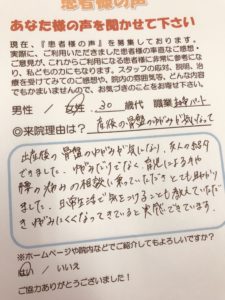 患者様の声
あなた様の声を聞かせて下さい
現在、『患者様の声』を募集しております。
実際に、ご利用いただきました患者様の率直なご感想・
ご意見が、これからご利用になる患者様に非常に参考にな
り、私どもの力にもなります。スタッフの応対、説明、治
療を受けてみてのご感想や、院内の雰囲気等、どんな内容
でもかまいませんので、お気づきのことをお寄せ下さい。
男性 / 女性 30 歳代 職業 パート
◎来院理由は? 産後の骨盤のゆがみが気になって
出産後の骨盤のゆがみが気になり、友人の紹介
できました。ゆがみだけでなく、育児による体や
体の痛みの相談に乗っていただきとても助かり
ました。日常生活で気をつけることも教えていただ
き、ゆがみにくくなってきていると実感できています。
※ホームページや院内などでご紹介してもよろしいですか?
はい / いいえ
ご協力ありがとうございました!